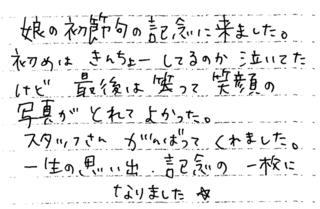 娘の初節句の記念に来ました。
初めは きんちょーしてるのか 泣いてた
けど 最後は笑って 笑顔の
写真が とれて よかった。
スタッフさん がんばって くれました。
一生の思い出、記念の一枚に
なりました ☆